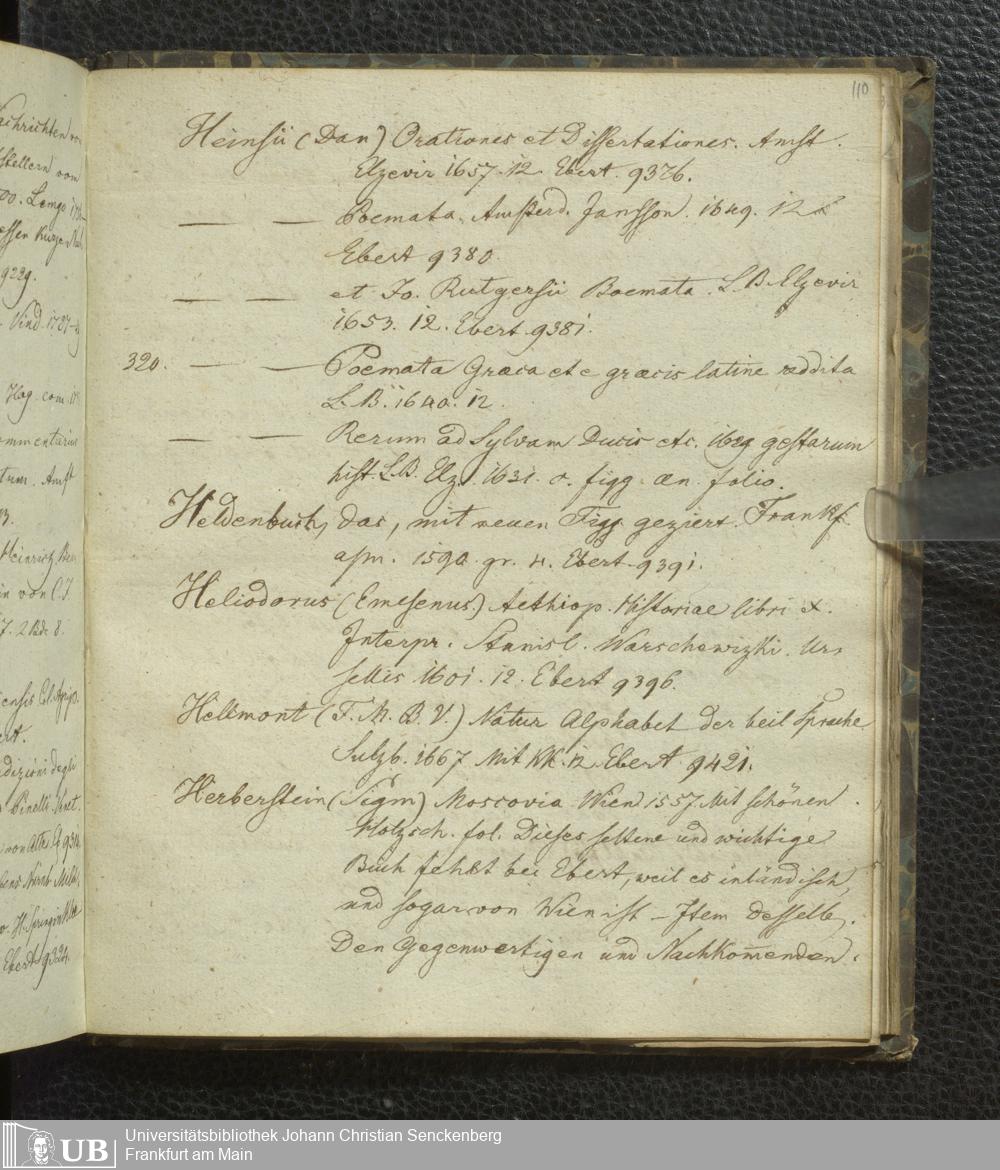 110
Heinsii (Dan) Orationes et Dissertationes. Amst.
Elzevir 1657. 12. Ebert. 9376.
— — Poemata. Amsterd. Jansson. 1649. 12
Ebert 9380.
— — et Jo. Rutgersii Poemata. L. B. Elzevir
1653. 12. Ebert 9381.
320. — — Poemata Græca et e græcis latine reddita
L. B. 1640. 12.
— — Rerum ad Sylvam Ducis etc. 1629 gestarum
hist. L. B. Elz. 1631. c. figg. æn. folio.
Heldenbuch, das, mit neuen Figg geziert. Frankf.
apm. 1590. gr. 4. Ebert 9391.
Heliodorus (Emesenus) Aethiop. Historiae libri X.
Interpr. Stanisl. Warschewizki. Ur
sellis 1601. 12. Ebert 9396.
Hellmont (F. M. B. V.) Natur Alphabet der heil Sprache
Sulzb. 1667 Mit KK. 12. Ebert 9421.
Herberstein (Sigm) Moscovia Wien 1557. Mit schönen
Holzsch. fol. Dieses seltene und wichtige
Buch fehlt bei Ebert, weil es inländisch,
und sogar von Wien ist – Item desselb.
Den Gegenwertigen und Nachkom̄enden.
achrichten von
stellern vom
Lemgo
9229.
Vind. 1787
Hag. com.
ommentarius
Amst
Heinrich
in von C. J.
2 Bde 8.
ensis
dizioni degli
Pinelli.
Ebert 9324.
UB
Universitätsbibliothek Johann Christian Senckenberg
Frankfurt am Main